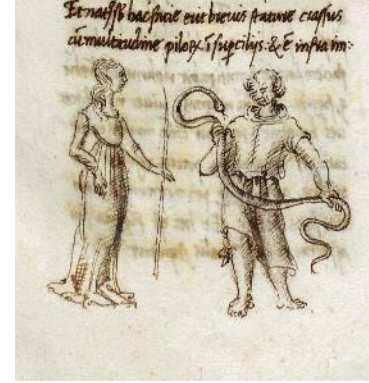 Et nascens hac facie erit brevis stature crassus
cu multitudine pilorꝝ i supciliys · & ē infra im: